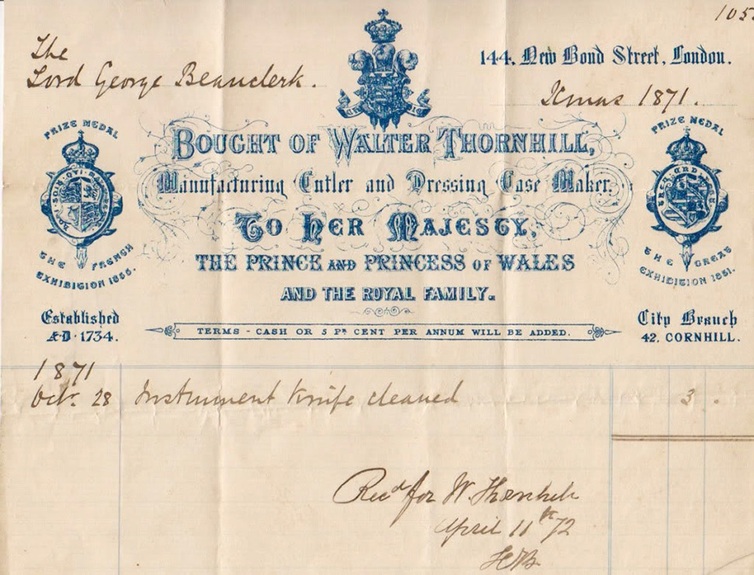 105
The
Lord George Beauclerk.
144, New Bond Street, London.
Xmas 1871.
PRIZE MEDAL
THE FRENCH
EXHIBITION 1855.
PRIZE MEDAL
THE GREAT
EXHIBITION 1851.
BOUGHT OF WALTER THORNHILL,
Manufacturing Cutler and Dressing Case Maker,
TO HER MAJESTY,
THE PRINCE AND PRINCESS OF WALES
AND THE ROYAL FAMILY.
Established
A·D· 1734.
TERMS - CASH OR 5 PR CENT PER ANNUM WILL BE ADDED.
City Branch
42, CORNHILL.
1871
Octr. 28 Instrument Knife cleaned 3 .
Recd for W. Thornhill
April 11th 72